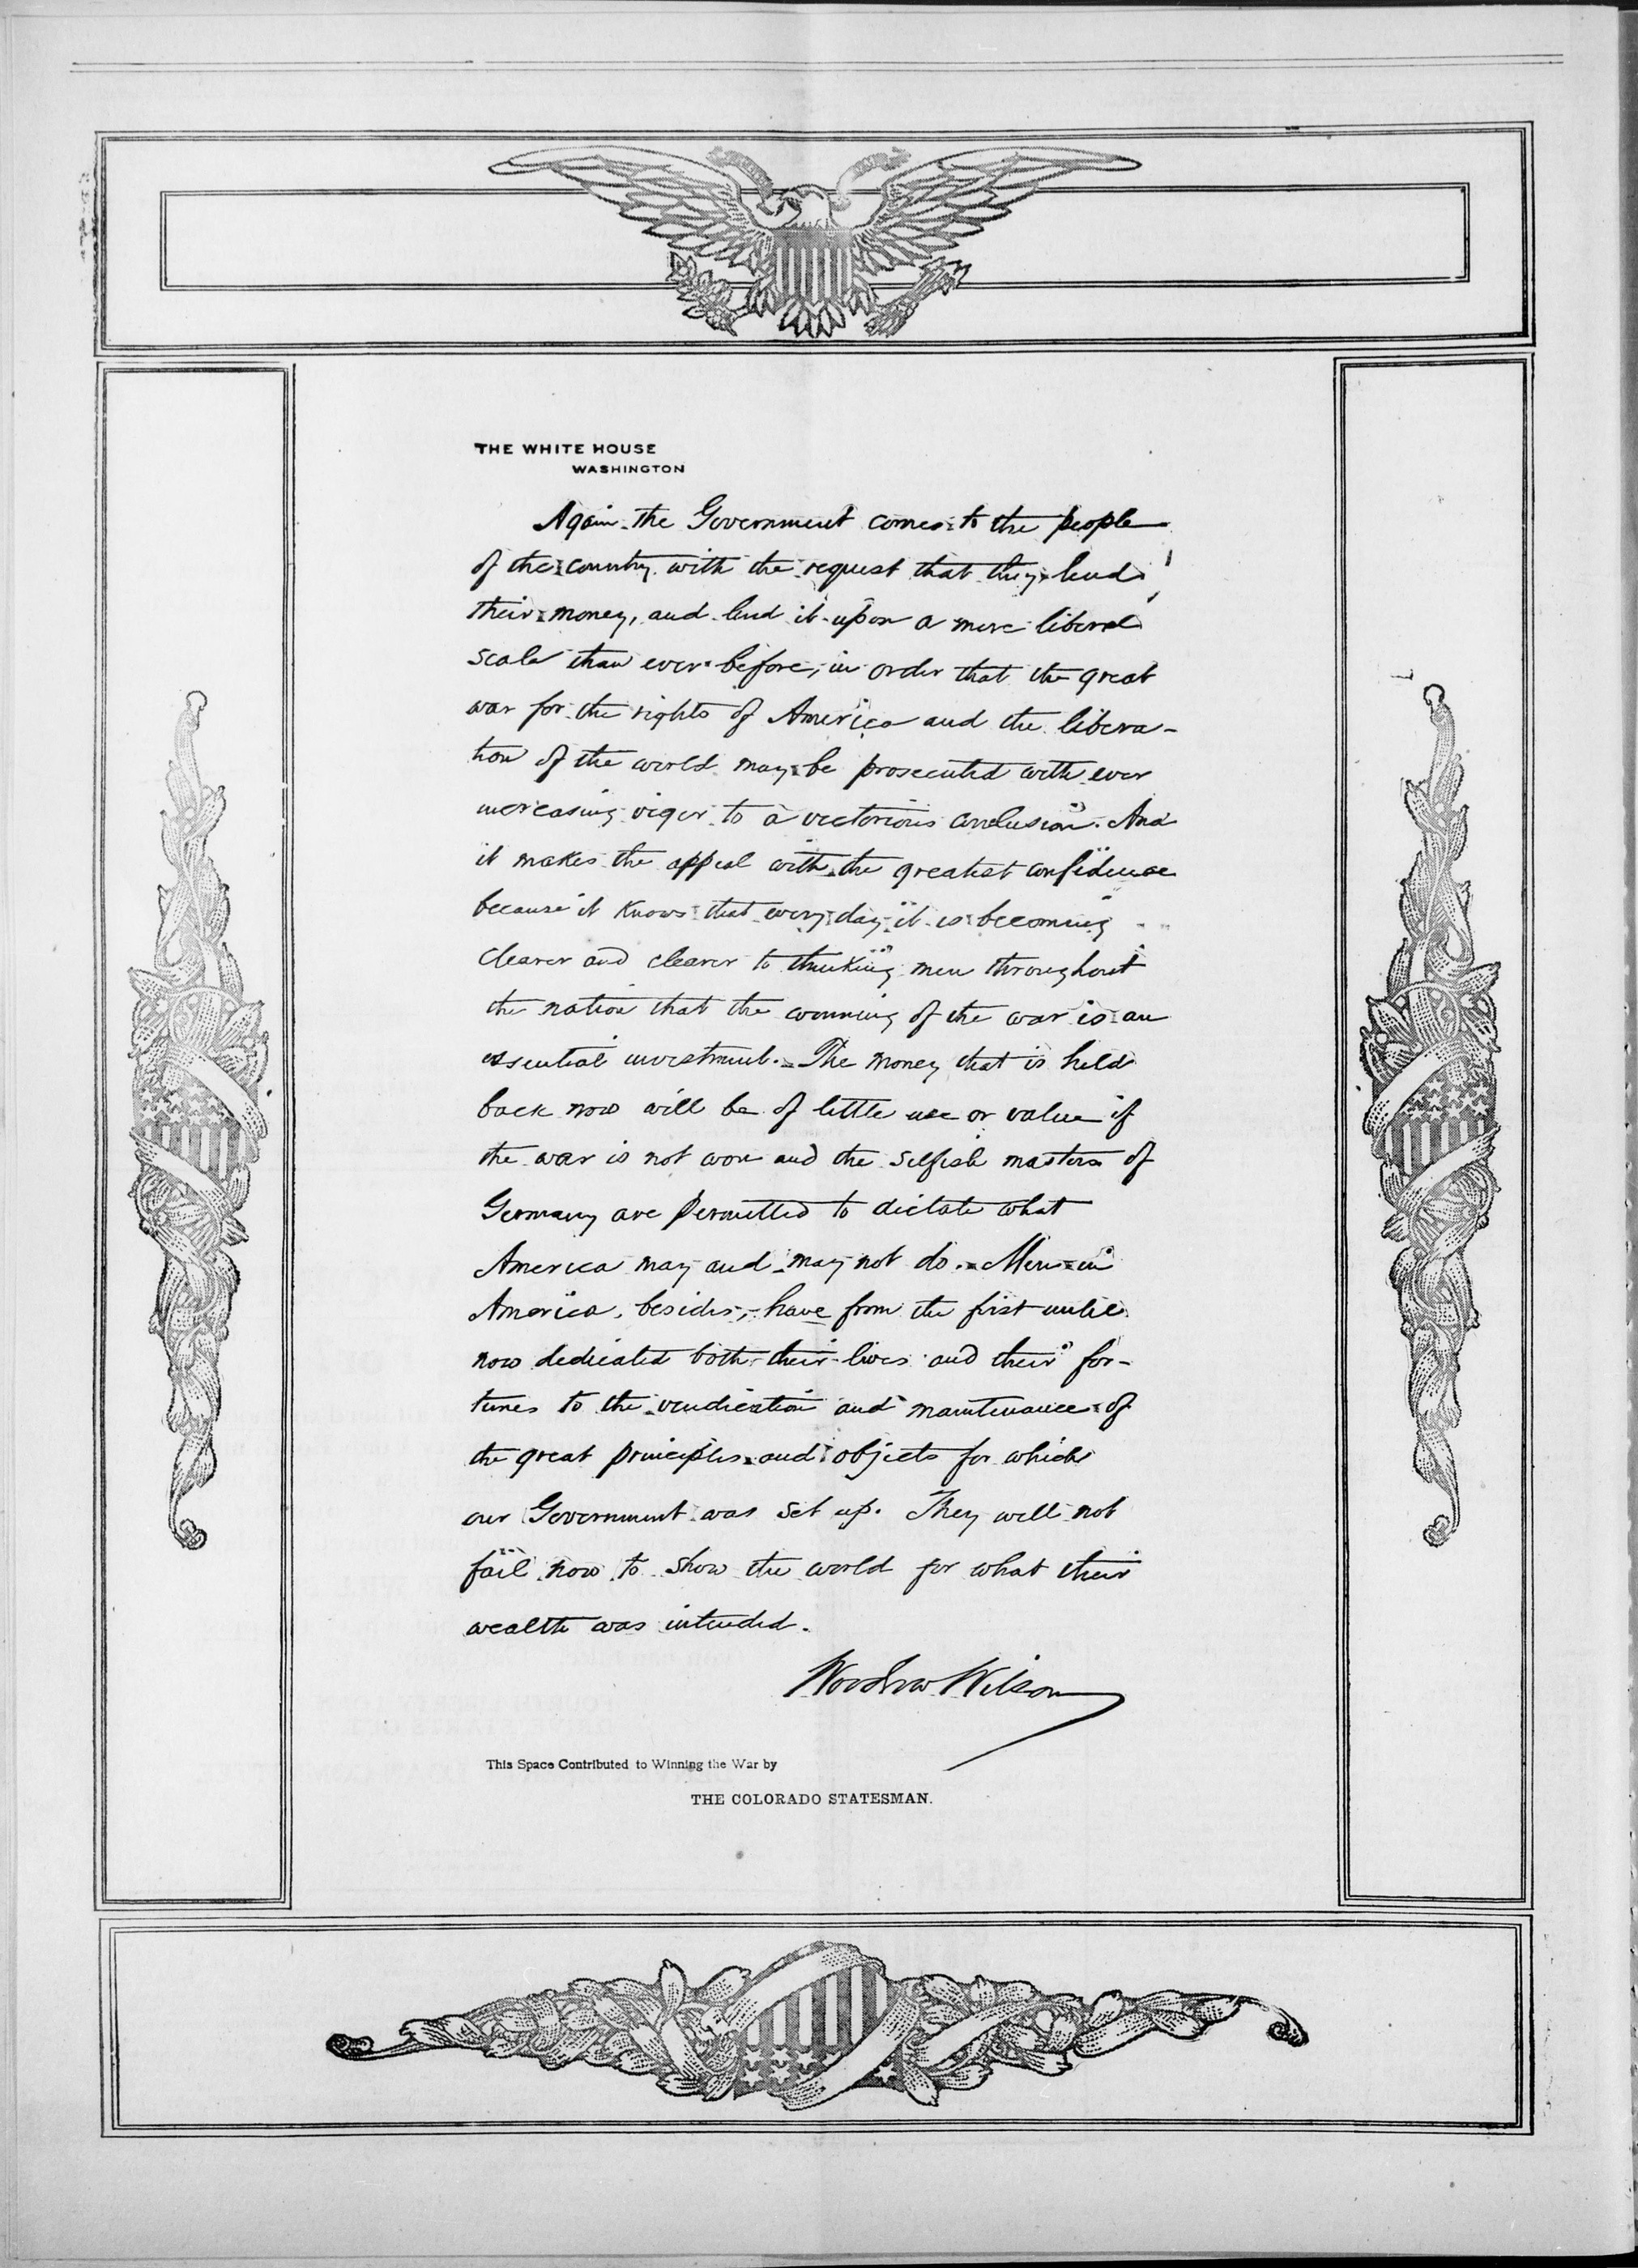 THE WHITE HOUSE
WASHINGTON
Again the Government comes to the people
of the country with the request that they lend
their money, and lend it upon a more liberal
scale than ever before, in order that the great
war for the rights of America and the libera-
tion of the world may be prosecuted with ever
increasing vigor to a victorious conclusion. And
it makes the appeal with the greatest confidence
because it knows that every day it is becoming
clearer and clearer to thinking men throughout
the nation that the winning of the war is an
essential investment. The money that is held
back now will be of little use or value if
the war is not won and the selfish masters of
Germany are permitted to dictate what
America may and may not do. Men in
America, besides, have from the first until
now dedicated both their lives and their for-
tunes to the vindication and maintenance of
the great principles and objects for which
our Government was set up. They will not
fail now to show the world for what their
wealth was intended.
Woodrow Wilson
This Space Contributed to Winning the War by
THE COLORADO STATESMAN.